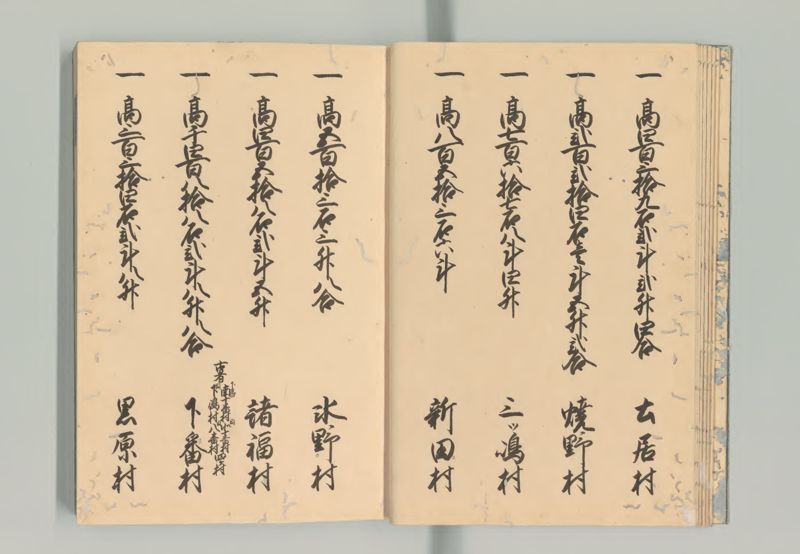 一 高四百六拾九石弐斗弐升四合 古居村
一 高弐百弐拾四石壱斗五升弐合 焼野村
一 高七百六拾七石八斗四升 三ッ嶋村
一 高八百五拾三石六斗 新田村
一 高五百拾三石三升八合 水野村
一 高四百五拾八石弐斗五升 諸福村
一 高千四百八拾八石弐斗八升八合 下番村
一 高三百三拾四石弐斗八升 黒原村